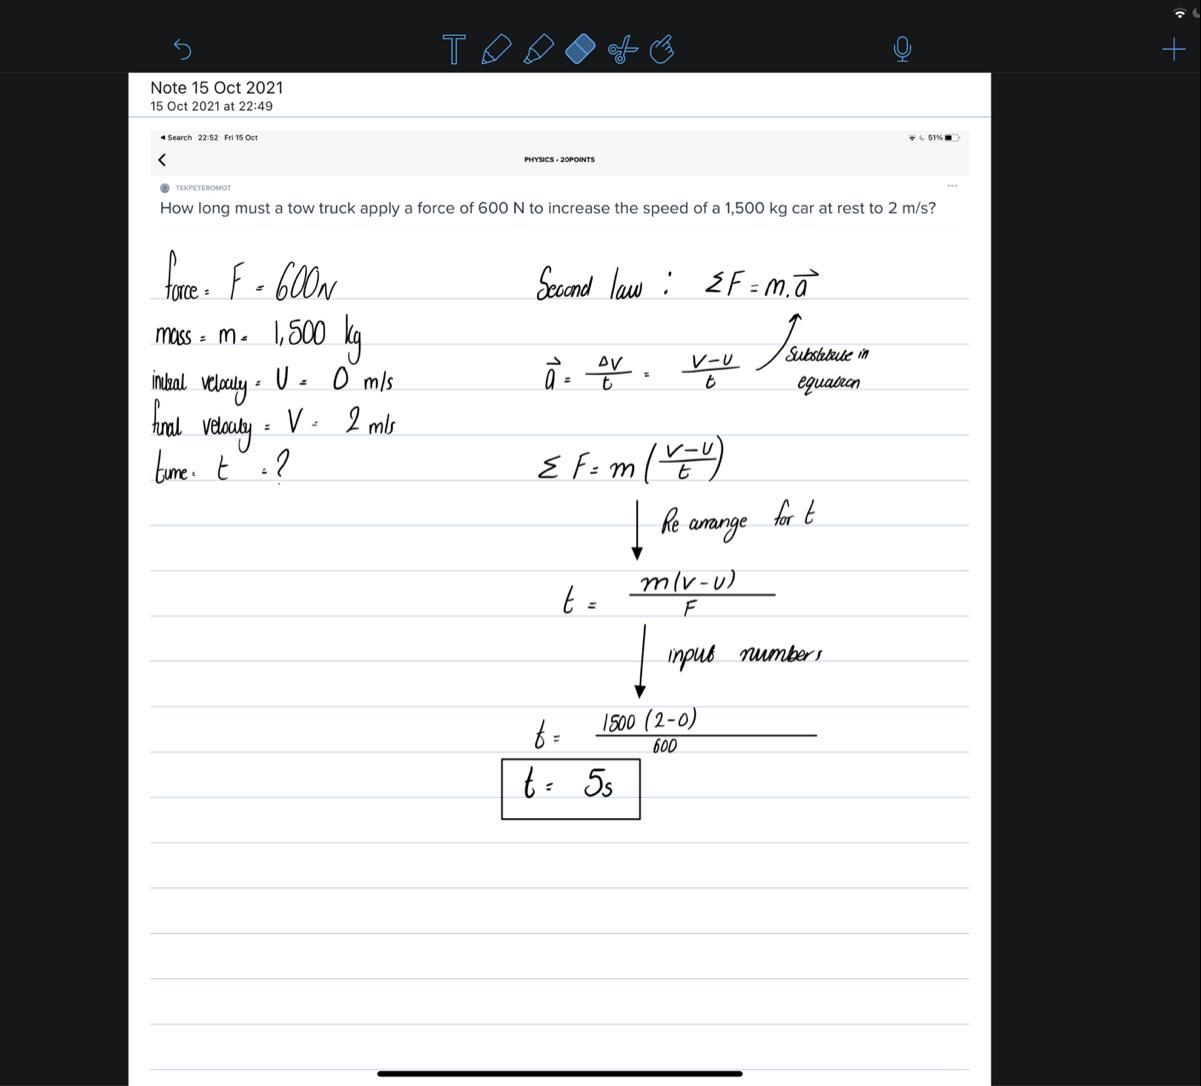 Note 15 Oct 2021
15 Oct 2021 at 22:49
Search 22:52 Fri 15 Oct
51%
PHYSICS • 20POINTS
TEKPETEROMOT
How long must a tow truck apply a force of 600 N to increase the speed of a 1,500 kg car at rest to 2 m/s?
force = F = 600N
mass = m = 1,500 kg
initial velocity = U = 0 m/s
final velocity = V = 2 m/s
time = t = ?
Second law : ΣF = m.a⃗
a⃗ = ΔV/t = V-U/t
Substitute in
equation
Σ F = m (V-U/t)
Re arrange for t
t = m(V-U)/F
input numbers
t = 1500 (2-0)/600
t = 5s